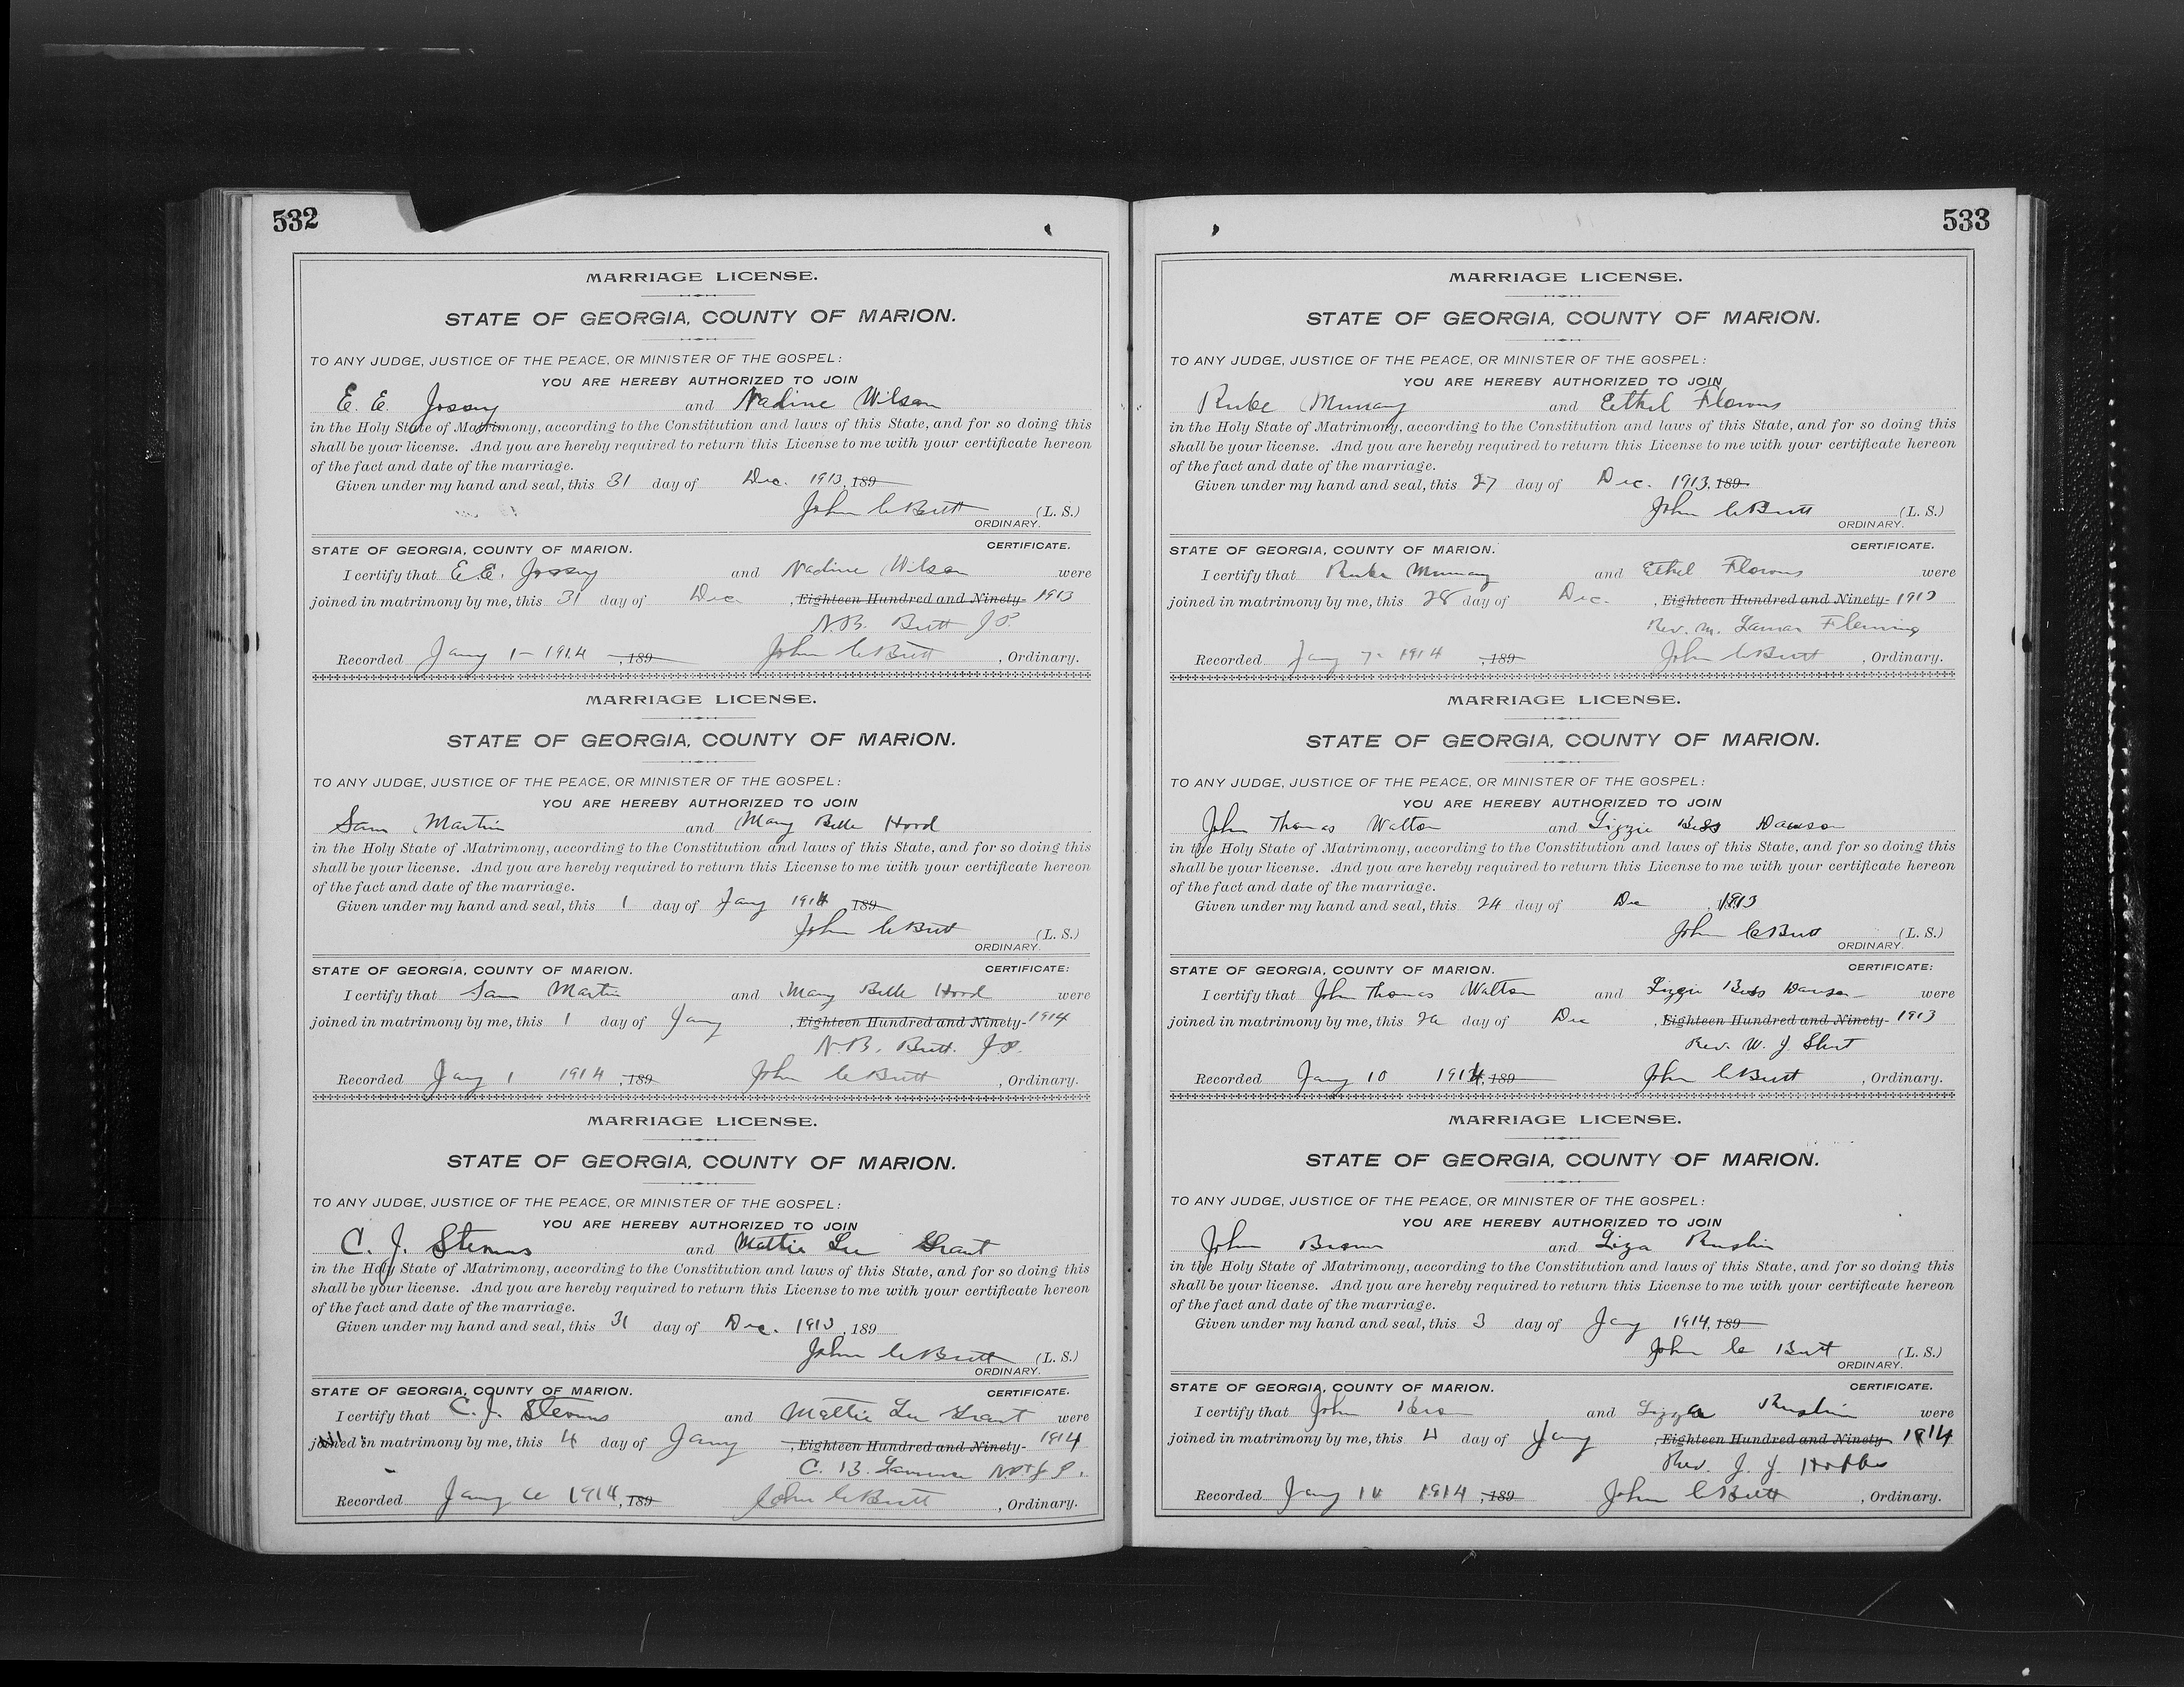 532
MARRIAGE LICENSE.
STATE OF GEORGIA, COUNTY OF MARION.
TO ANY JUDGE, JUSTICE OF THE PEACE, OR MINISTER OF THE GOSPEL:
YOU ARE HEREBY AUTHORIZED TO JOIN
E. E. Jossey and Nadine Wilson
in the Holy State of Matrimony, according to the Constitution and laws of this State, and for so doing this
shall be your license. And you are hereby required to return this License to me with your certificate hereon
of the fact and date of the marriage.
Given under my hand and seal, this 31 day of Dec. 1913, 189
John C Butt (L. S.)
ORDINARY.
STATE OF GEORGIA, COUNTY OF MARION. CERTIFICATE.
I certify that E.E. Jossey and Nadine Wilson were
joined in matrimony by me, this 31 day of Dec , Eighteen Hundred and Ninety- 1913
N.B. Butt J.P.
Recorded Jany 1- 1914 , 189 John C Butt , Ordinary.
MARRIAGE LICENSE.
STATE OF GEORGIA, COUNTY OF MARION.
TO ANY JUDGE, JUSTICE OF THE PEACE, OR MINISTER OF THE GOSPEL:
YOU ARE HEREBY AUTHORIZED TO JOIN
Sam Martin and Mary Belle Hord
in the Holy State of Matrimony, according to the Constitution and laws of this State, and for so doing this
shall be your license. And you are hereby required to return this License to me with your certificate hereon
of the fact and date of the marriage.
Given under my hand and seal, this 1 day of Jany 1914 189
John C Butt (L. S.)
ORDINARY.
STATE OF GEORGIA, COUNTY OF MARION. CERTIFICATE:
I certify that Sam Martin and Mary Belle Hord were
joined in matrimony by me, this 1 day of Jany , Eighteen Hundred and Ninety- 1914
N.B. Butt. J.P.
Recorded Jany 1 1914 , 189 John C Butt , Ordinary.
MARRIAGE LICENSE.
STATE OF GEORGIA, COUNTY OF MARION.
TO ANY JUDGE, JUSTICE OF THE PEACE, OR MINISTER OF THE GOSPEL:
YOU ARE HEREBY AUTHORIZED TO JOIN
C. J. Stevens and Mattie Lee Grant
in the Holy State of Matrimony, according to the Constitution and laws of this State, and for so doing this
shall be your license. And you are hereby required to return this License to me with your certificate hereon
of the fact and date of the marriage.
Given under my hand and seal, this 31 day of Dec. 1913 , 189
John C Butt (L. S.)
ORDINARY.
STATE OF GEORGIA, COUNTY OF MARION. CERTIFICATE.
I certify that C. J. Stevens and Mattie Lee Grant were
joined in matrimony by me, this 4 day of Jany , Eighteen Hundred and Ninety- 1914
C. B.
Recorded Jany 1914 , 189 John C Butt , Ordinary.
533
MARRIAGE LICENSE.
STATE OF GEORGIA, COUNTY OF MARION.
TO ANY JUDGE, JUSTICE OF THE PEACE, OR MINISTER OF THE GOSPEL:
YOU ARE HEREBY AUTHORIZED TO JOIN
Rube Murray and Ethel Flowers
in the Holy State of Matrimony, according to the Constitution and laws of this State, and for so doing this
shall be your license. And you are hereby required to return this License to me with your certificate hereon
of the fact and date of the marriage.
Given under my hand and seal, this 27 day of Dec. 1913, 189
John C Butt (L. S.)
ORDINARY.
STATE OF GEORGIA, COUNTY OF MARION. CERTIFICATE.
I certify that Rube Murray and Ethel Flowers were
joined in matrimony by me, this 28 day of Dec. , Eighteen Hundred and Ninety- 1913
Rev. M. Lamar Fleming
Recorded Jany 7- 1914 , 189 John C Butt , Ordinary.
MARRIAGE LICENSE.
STATE OF GEORGIA, COUNTY OF MARION.
TO ANY JUDGE, JUSTICE OF THE PEACE, OR MINISTER OF THE GOSPEL:
YOU ARE HEREBY AUTHORIZED TO JOIN
John Thomas Walton and Lizzie Bess Dawson
in the Holy State of Matrimony, according to the Constitution and laws of this State, and for so doing this
shall be your license. And you are hereby required to return this License to me with your certificate hereon
of the fact and date of the marriage.
Given under my hand and seal, this 24 day of Dec , 1913
John C Butt (L. S.)
ORDINARY.
STATE OF GEORGIA, COUNTY OF MARION. CERTIFICATE:
I certify that John Thomas Walton and Lizzie Bess Dawson were
joined in matrimony by me, this day of Dec , Eighteen Hundred and Ninety- 1913
Rev. W. J.
Recorded Jany 10 1914, 189 John C Butt , Ordinary.
MARRIAGE LICENSE.
STATE OF GEORGIA, COUNTY OF MARION.
TO ANY JUDGE, JUSTICE OF THE PEACE, OR MINISTER OF THE GOSPEL:
YOU ARE HEREBY AUTHORIZED TO JOIN
John Brown and Liza Rushin
in the Holy State of Matrimony, according to the Constitution and laws of this State, and for so doing this
shall be your license. And you are hereby required to return this License to me with your certificate hereon
of the fact and date of the marriage.
Given under my hand and seal, this 3 day of Jany 1914, 189
John C Butt (L. S.)
ORDINARY.
STATE OF GEORGIA, COUNTY OF MARION. CERTIFICATE.
I certify that John and Rushin were
joined in matrimony by me, this 4 day of Jany , Eighteen Hundred and Ninety 1914
Rev. J. J. Hobbs
Recorded Jany 1914 , 189 John C Butt , Ordinary.